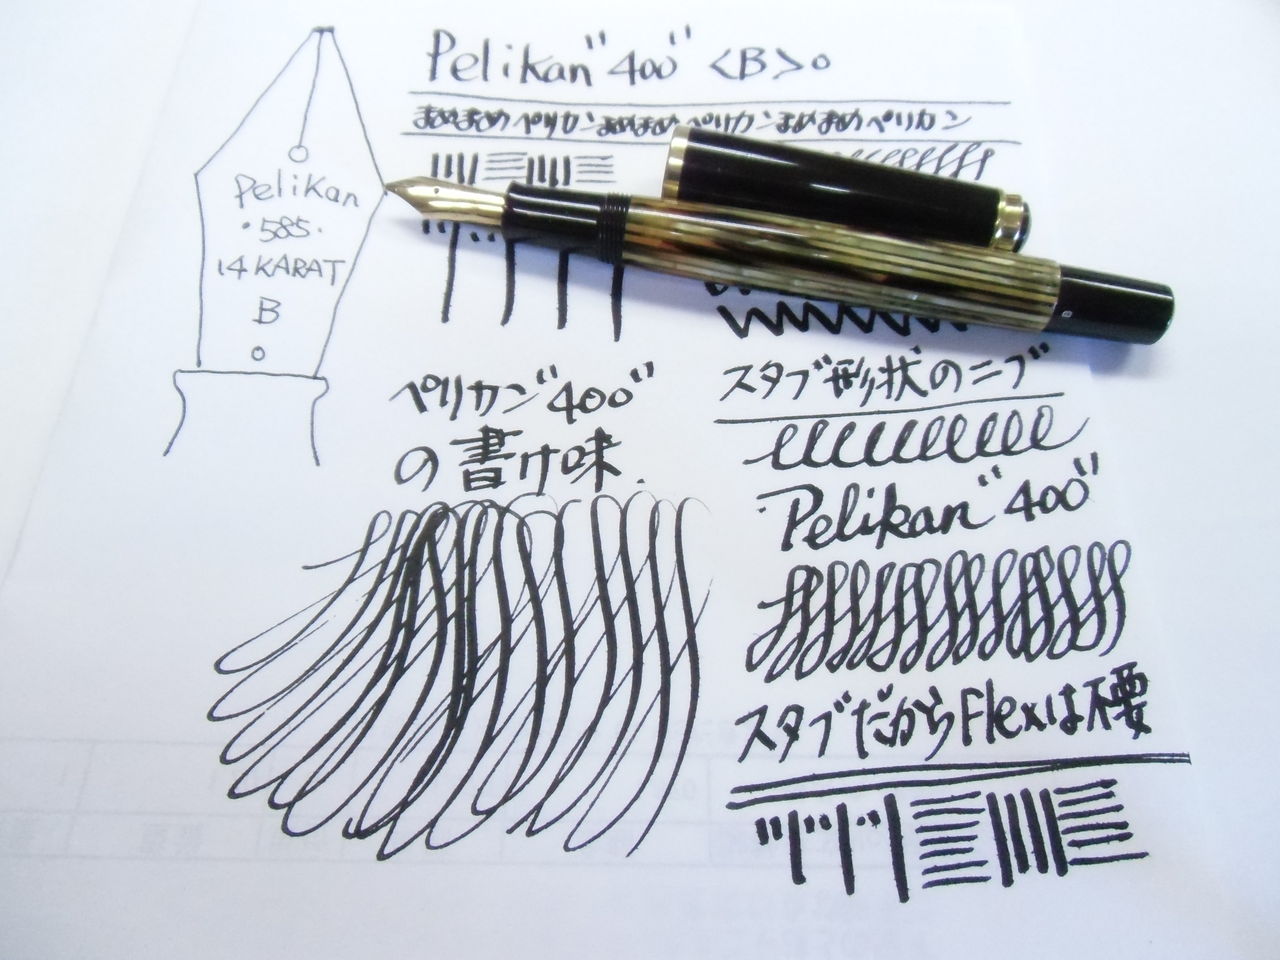 Pelikan "400" <B>。
まめまめペリカンまめまめペリカンまめまめペリカン
Pelikan
・585・
14 KARAT
B
B
ペリカン"400"
の書け味.
スタブ形状のニブ
Pelikan "400"
スタブだからFlexは不要